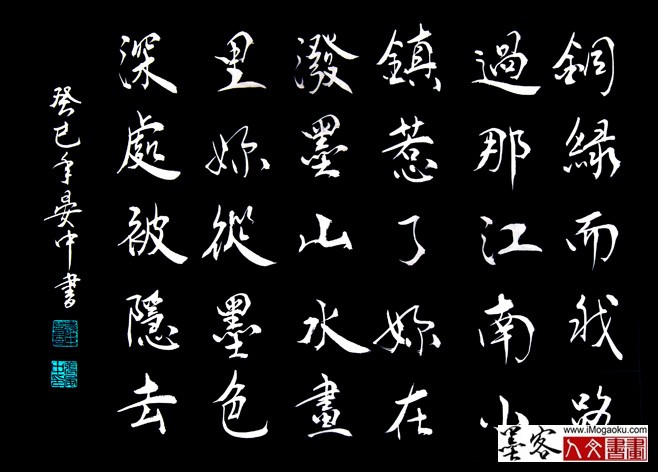 銅緑而我路
過那江南小
鎮惹了妳在
潑墨山水畫
里妳從墨色
深處被隱去
癸巳年晏中書
墨客
www.iMogaoku.com
人文書畫